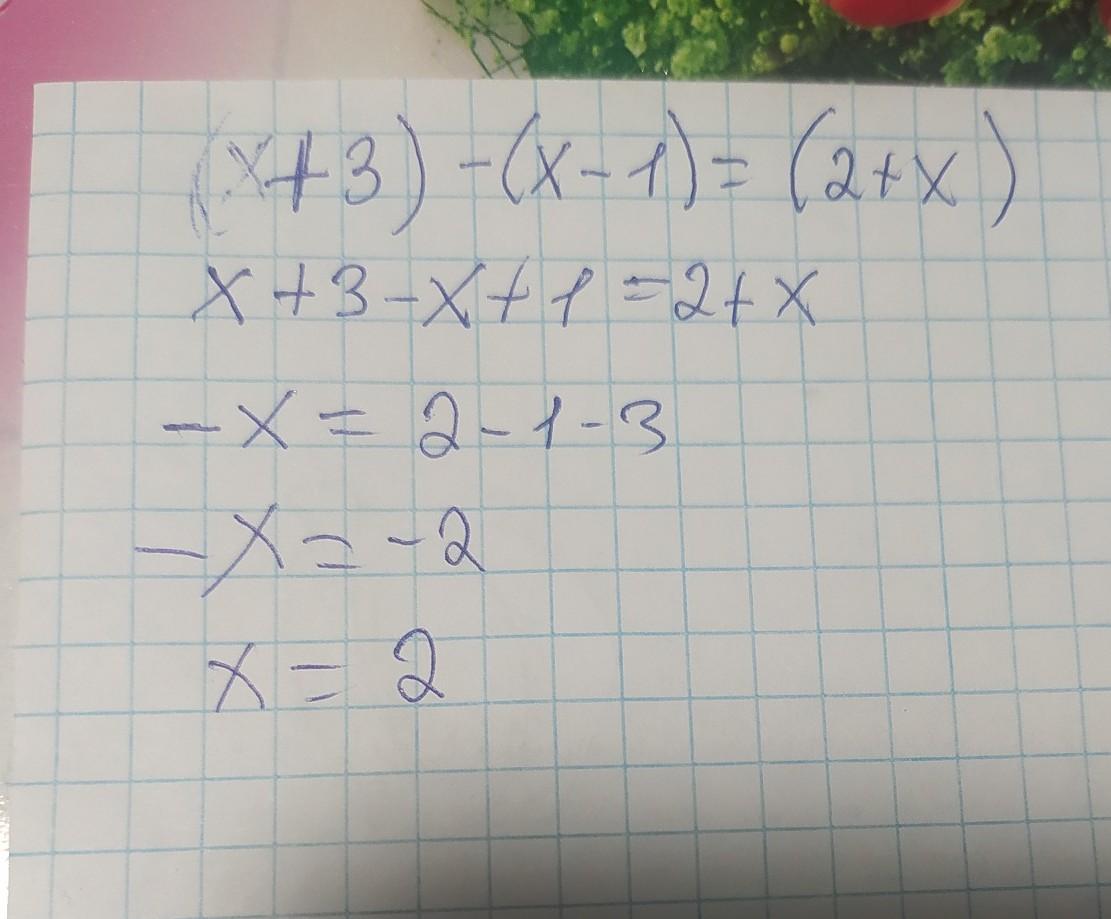 (x+3)-(x-1)=(2+x)
x+3-x+1=2+x
-x=2-1-3
-x=-2
x=2